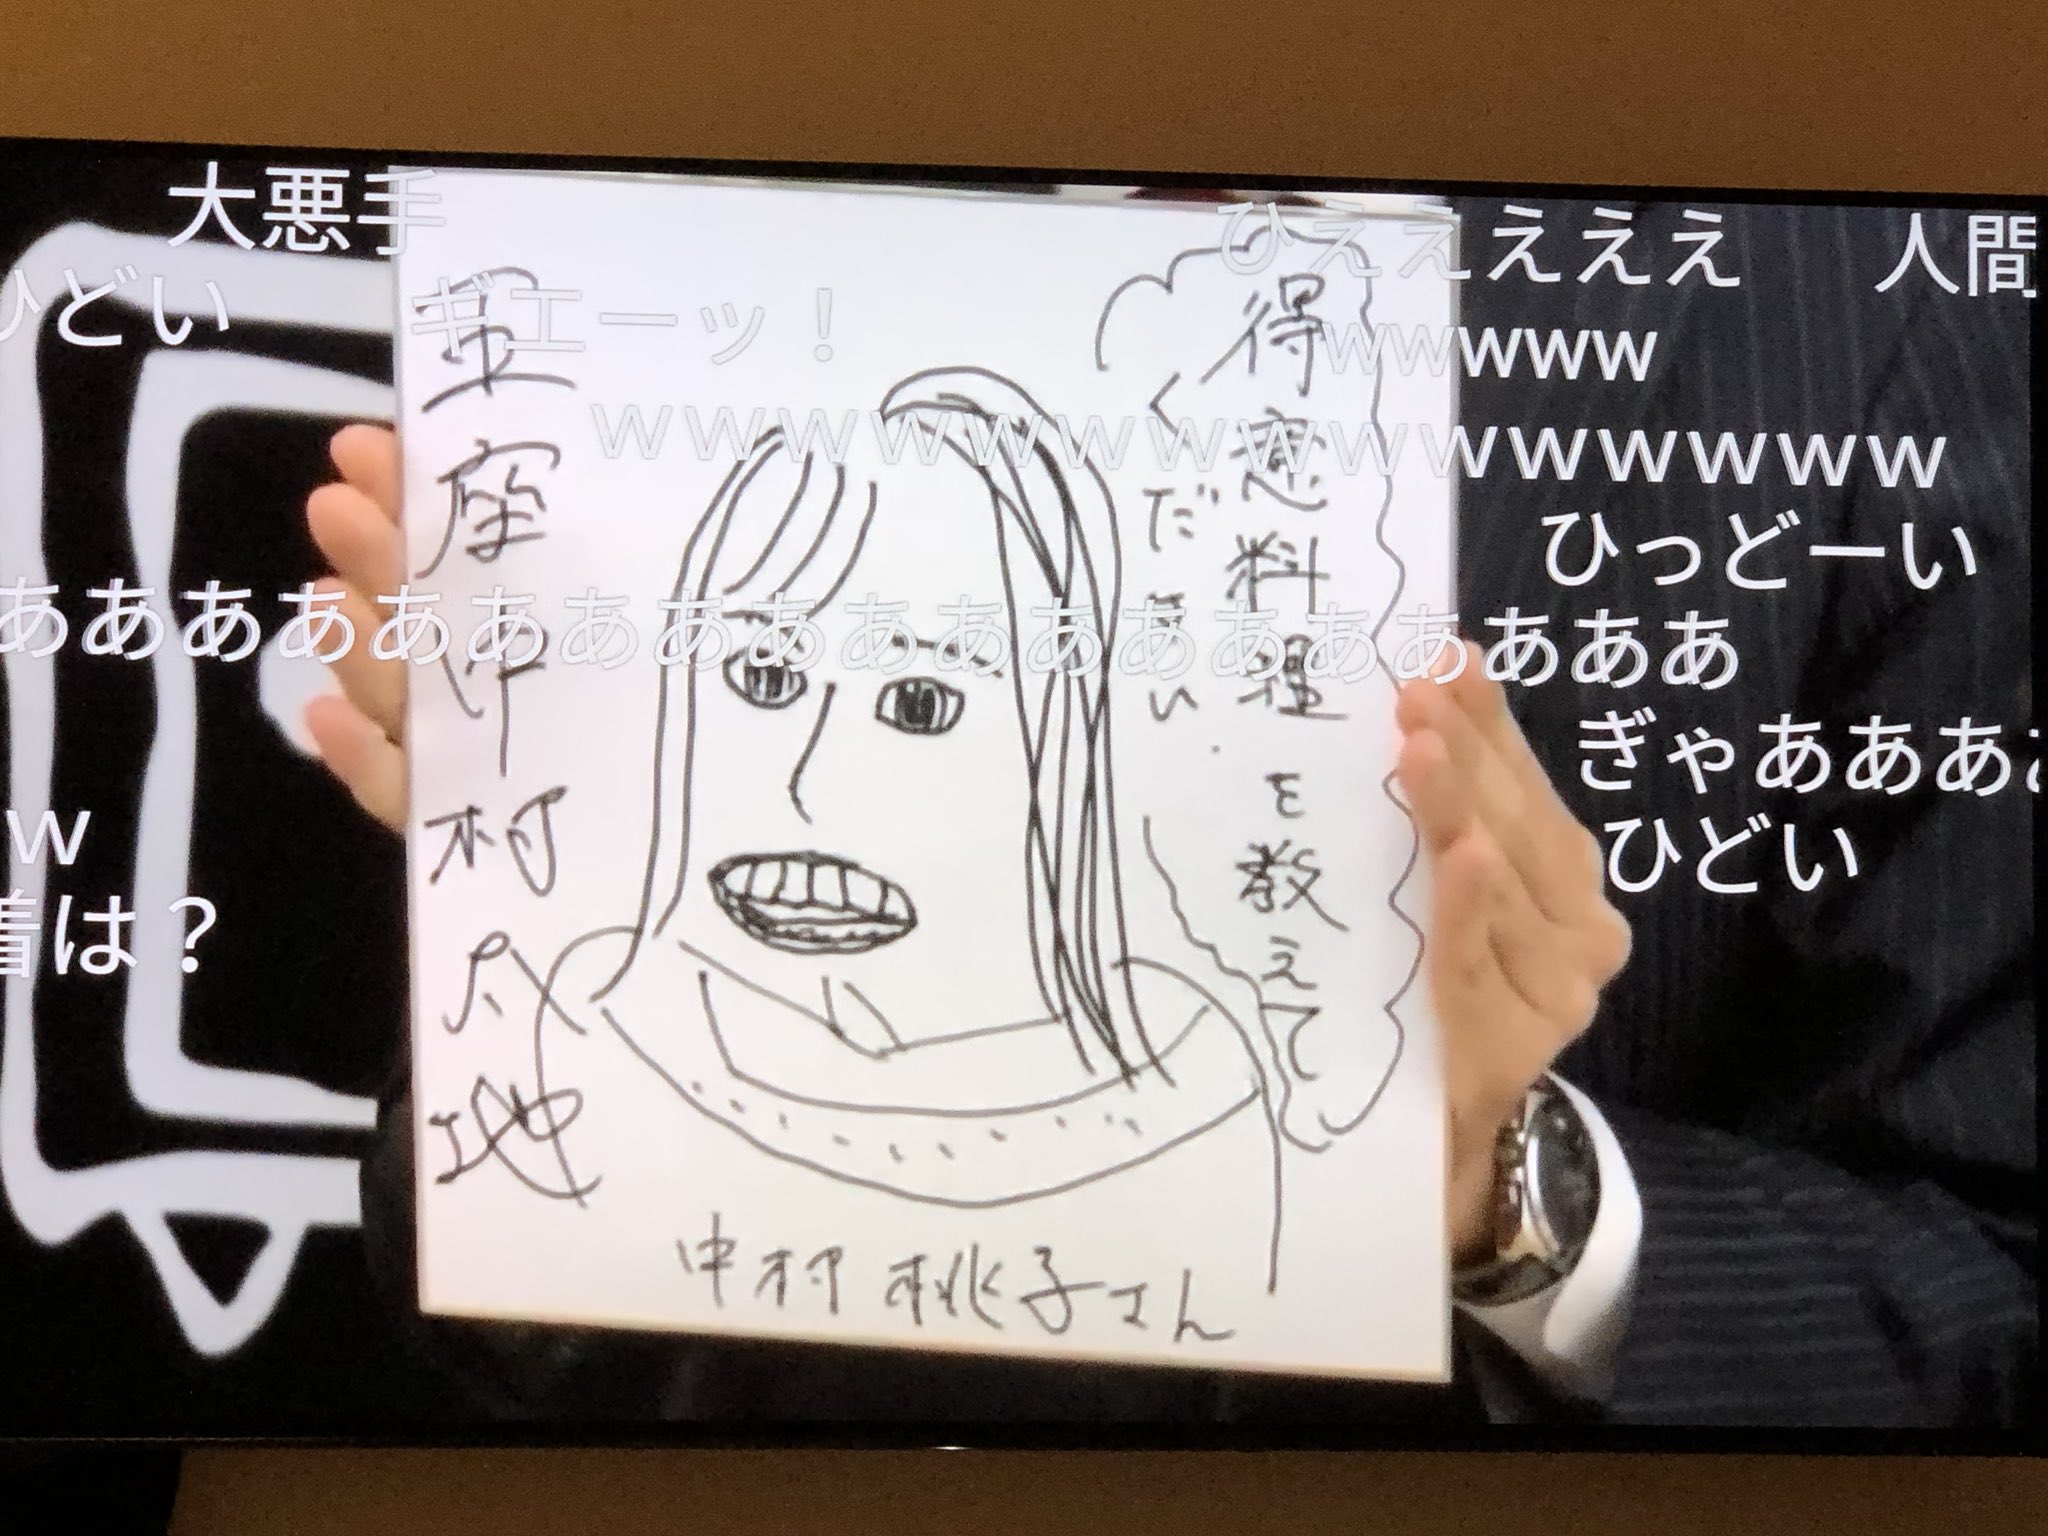 大悪手
ひえええええ
人間
ひどい
ギエーッ！
wwwwww
wwwwwwwwwwwwwww
ひっどーい
あああああああああああああああああああ
ぎゃあああぁ
w
ひどい
着は？
得意料理を教えて
ください.
王座中村太地
中村桃子さん